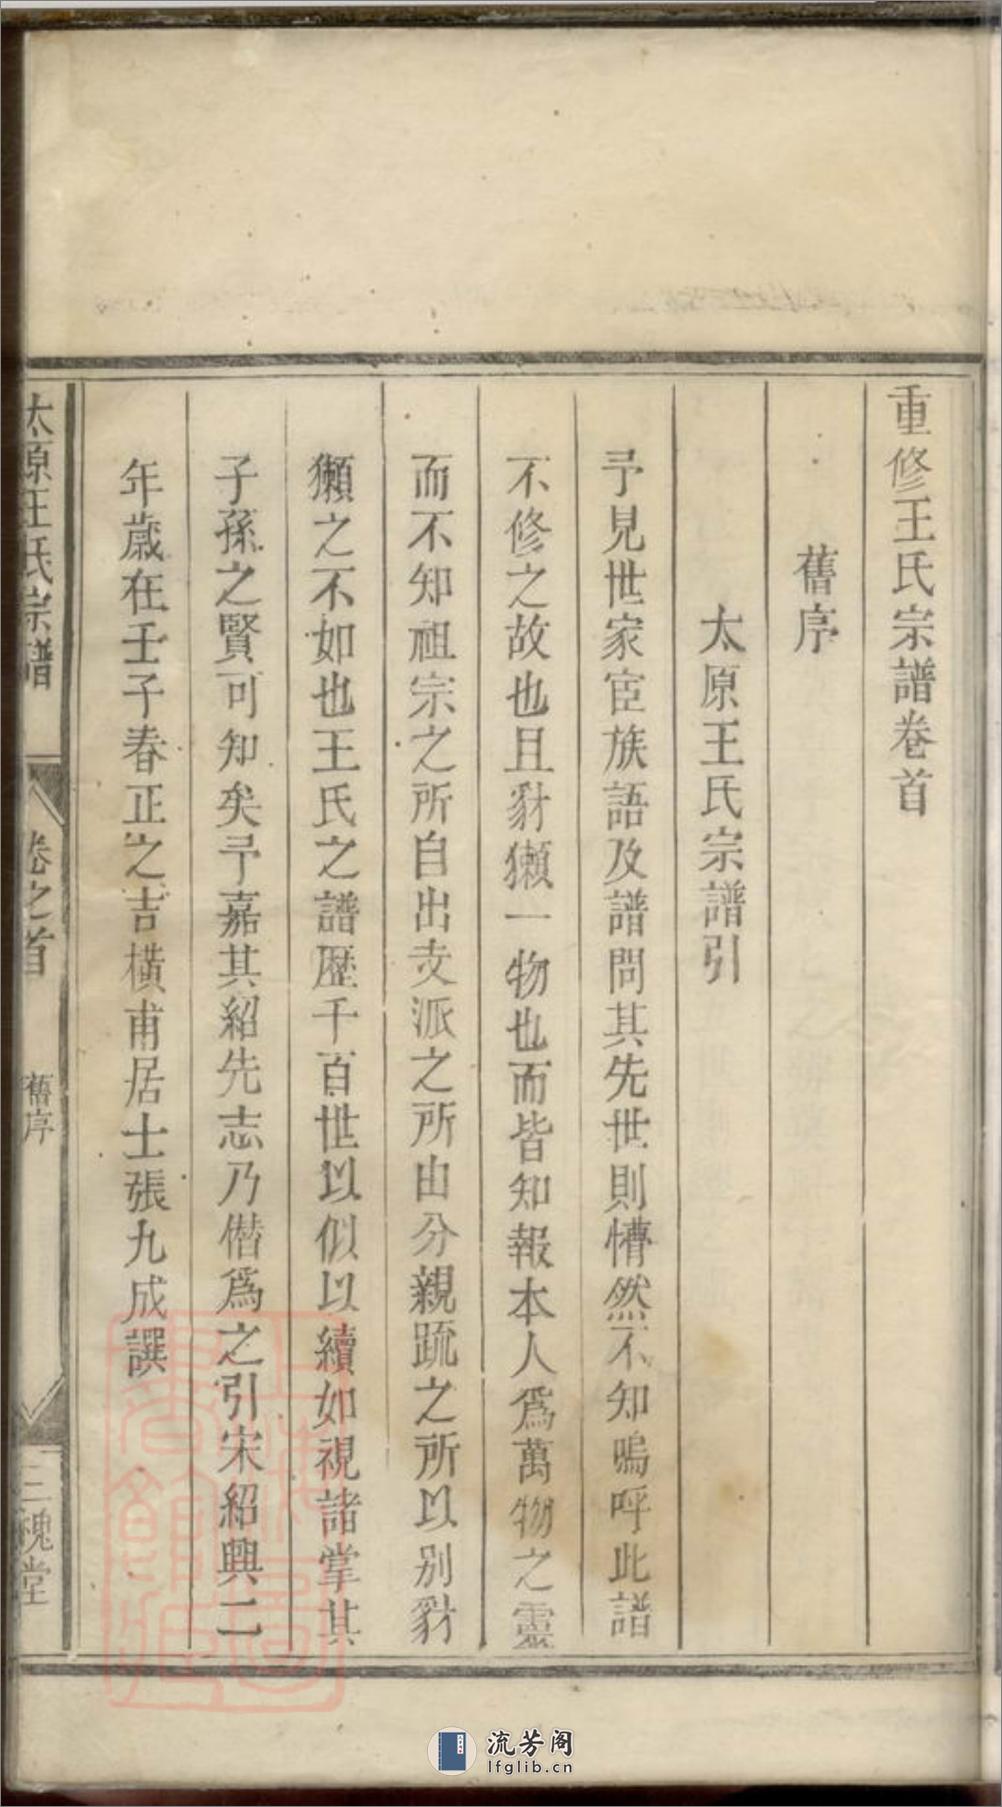 重修王氏宗譜卷首
舊序
太原王氏宗譜引
予見世家宦族語及譜問其先世則懵然不知嗚呼此譜
不修之故也且豺獺一物也而皆知報本人爲萬物之靈
而不知祖宗之所自出支派之所由分親疏之所以别豺
獺之不如也王氏之譜歷千百世以似以續如視諸掌其
子孫之賢可知矣予嘉其紹先志乃僭爲之引宋紹興二
年歲在壬子春正之吉橫甫居士張九成譔
太原王氏宗譜
卷之首
舊序
三槐堂
流芳阁
lfglib.cn